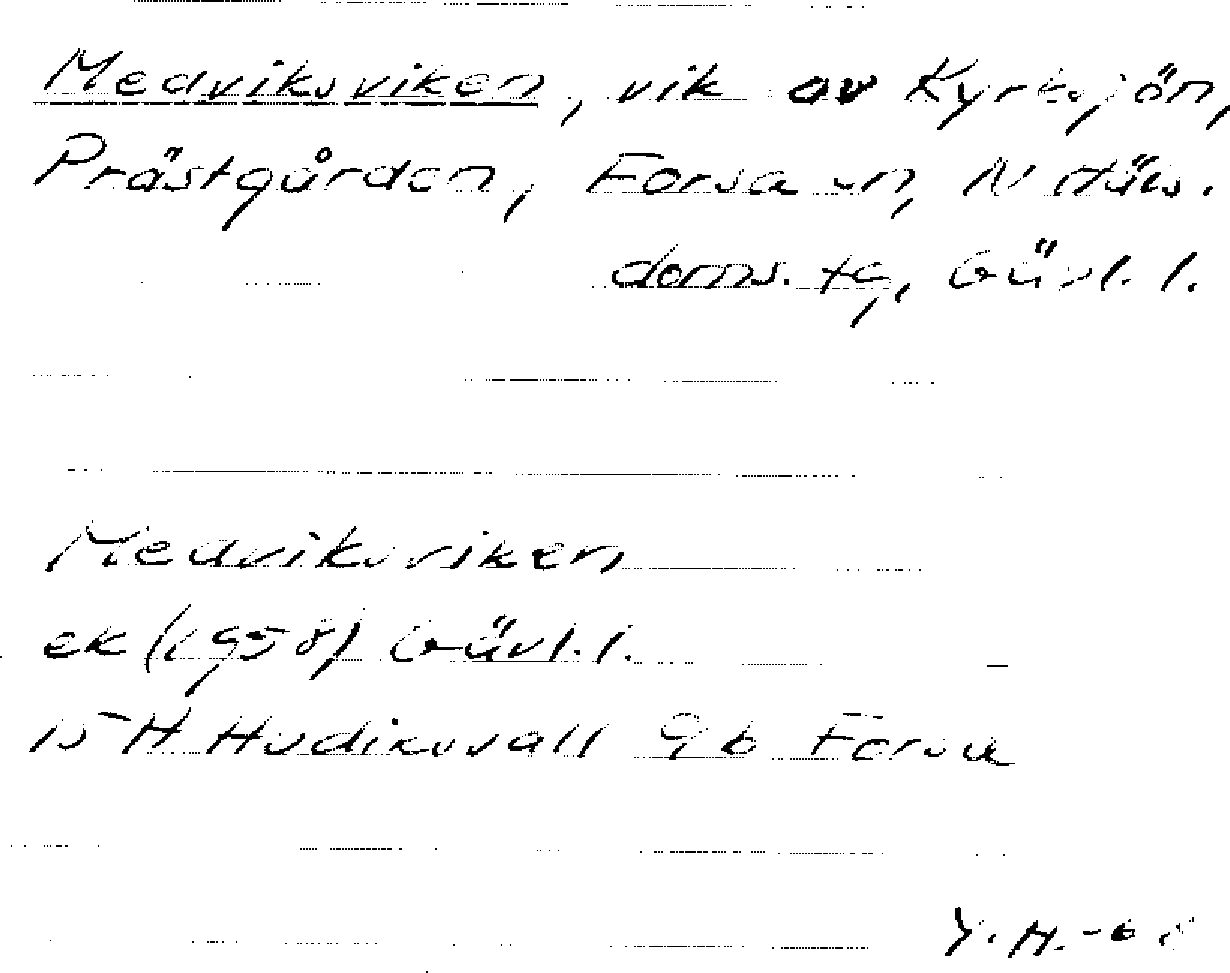 Medviksviken, vik av Kyrksjön,
Prästgården, Forsa sn, N Häls.
doms. tg, Gävl. l.
Medviksviken
ek (1958) Gävl. l.
15 H Hudiksvall 9 b Forsa
Y. H.